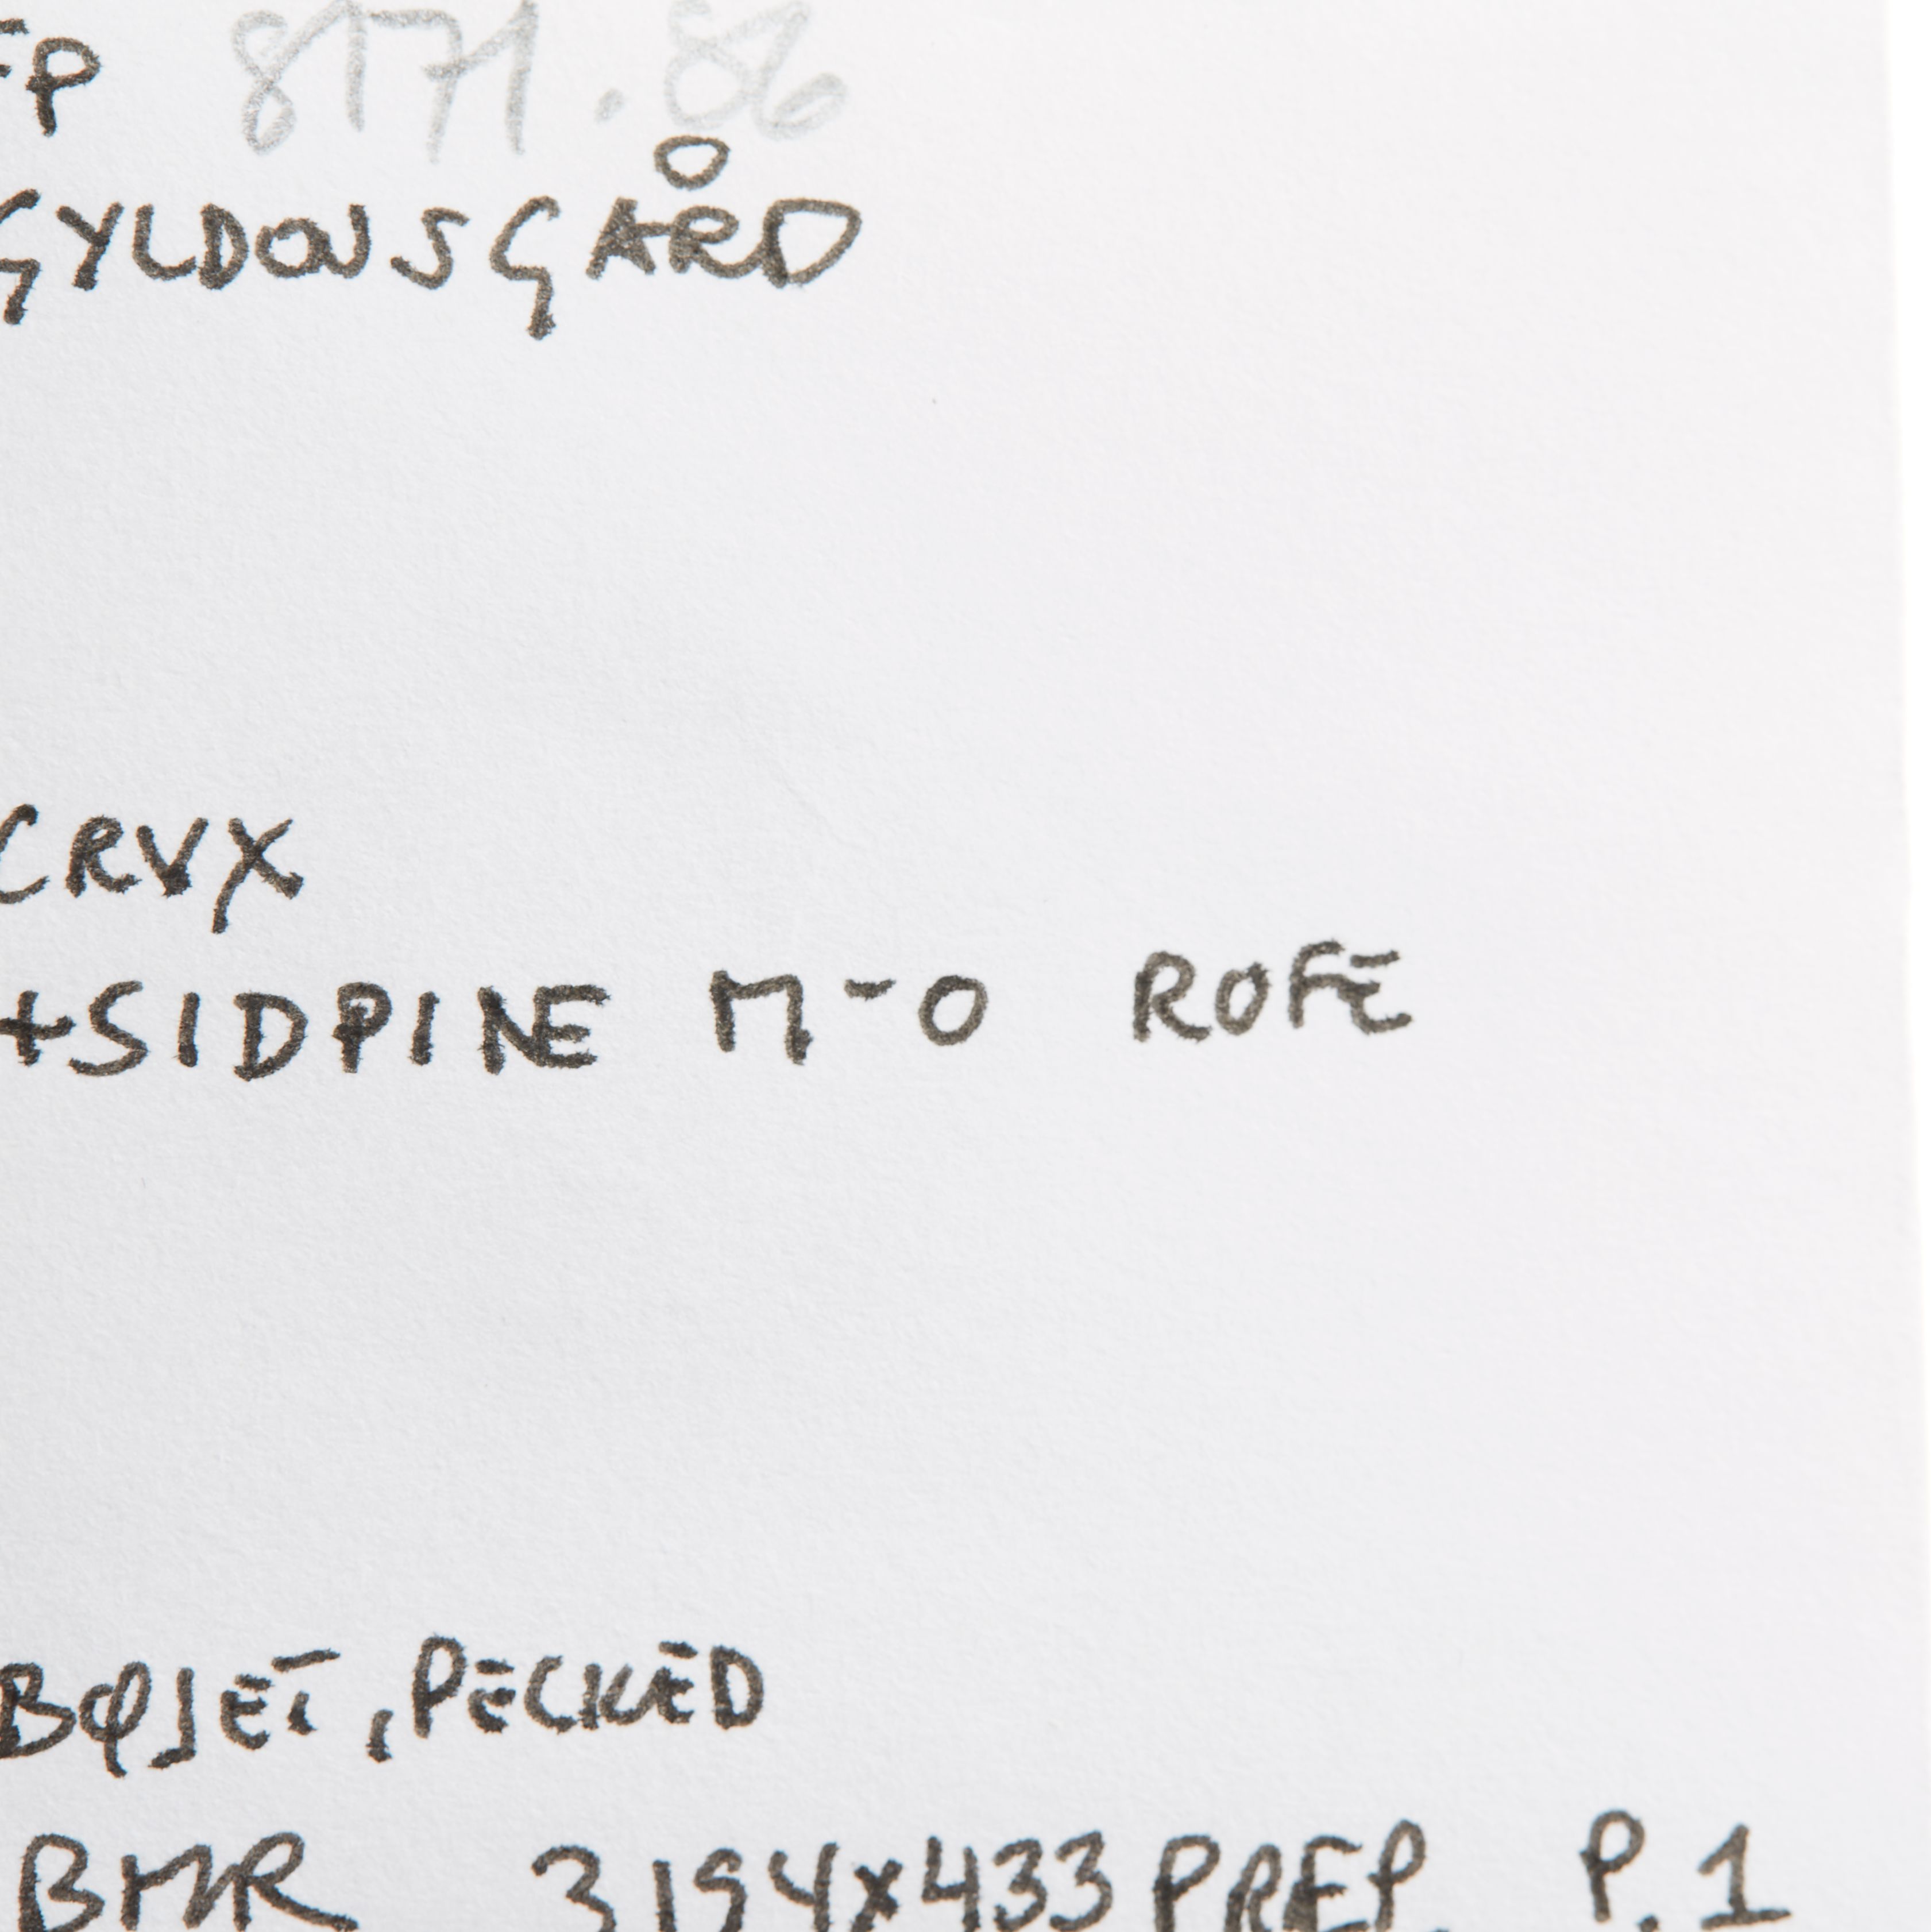 FP 8171.86
GYLDONSGÅRD
CRVX
+SIDPINE M-O ROFE
BØJET, PECKED
BMR 3194x433 PREP. P.1